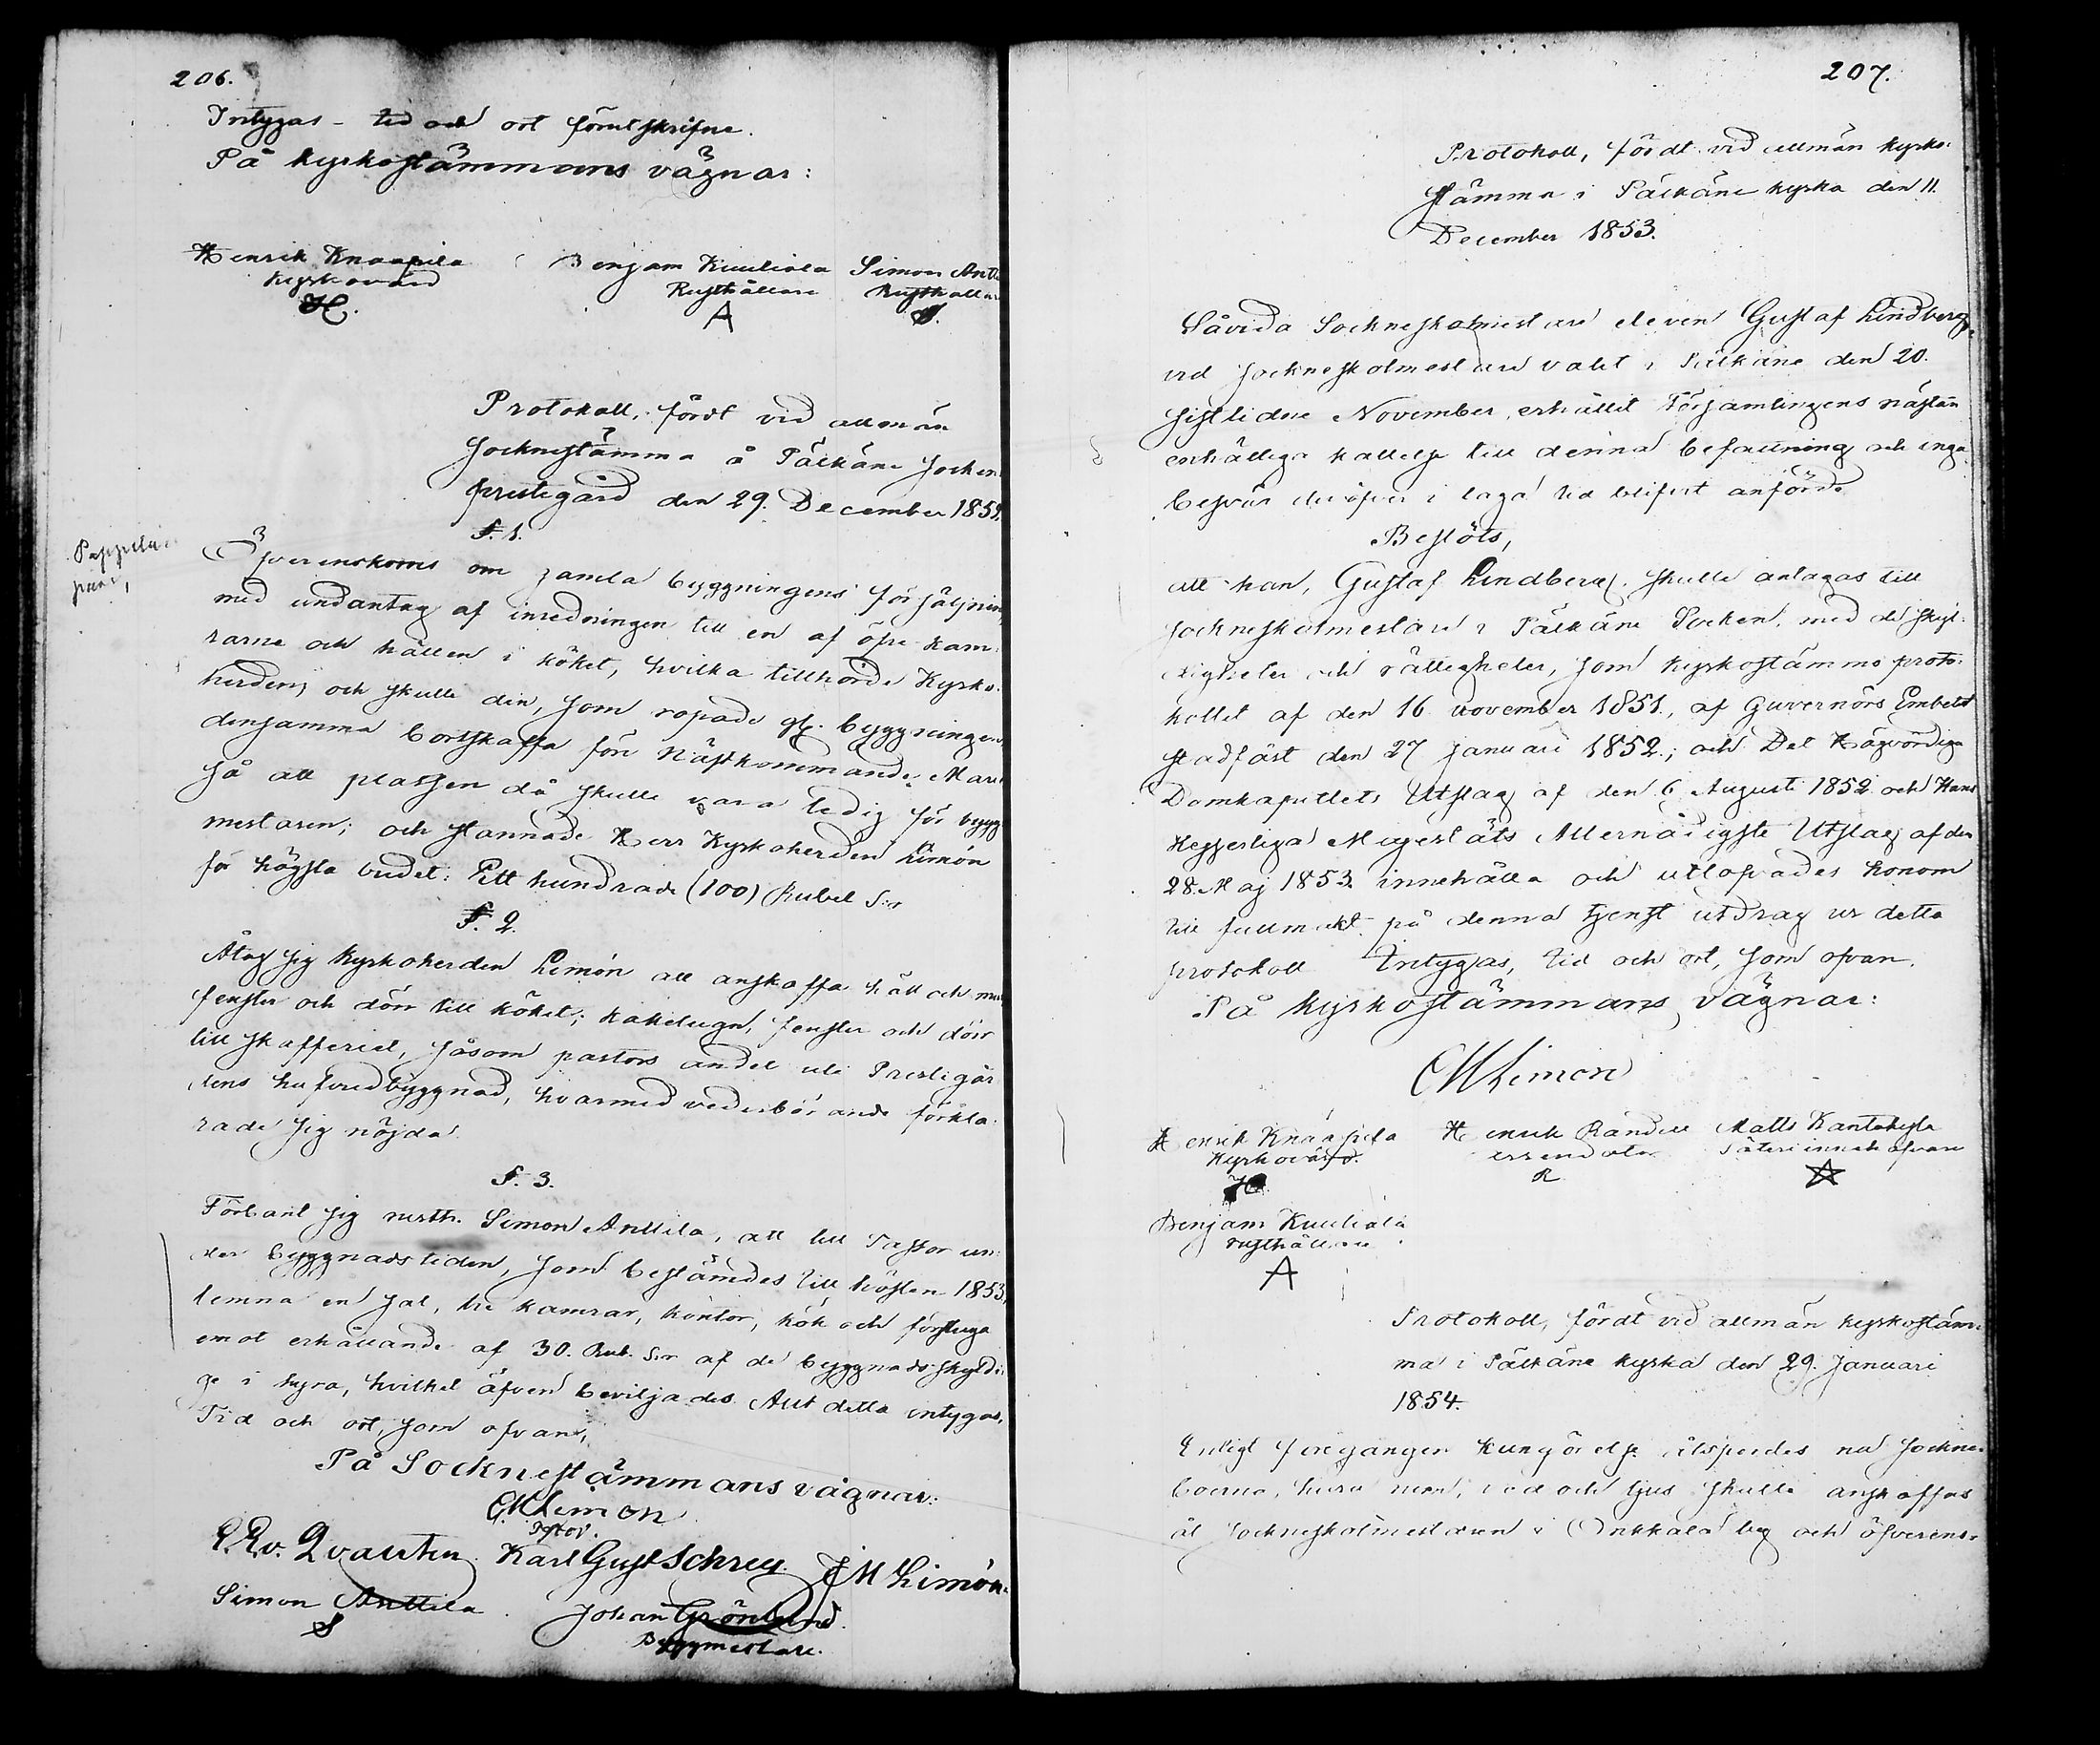 206.
Intygas - tid och ort förutskrifne.
På Kyrkostämmans vägnar:
Henrik Knaapila Benjam Kuuliala Simon Antti
Kyrkovärd Rusthållare Rusthållar
H. A S.
Protokoll, fördt vid allmän
Socknestämma å Pälkäne Socken
prestegård den 29. December 1851.
§. 1.
Öfverenskoms om gamla byggningens försäljning
med undantag af inredningen till en af öfre kam-
rarne och hällen i köket, hvilka tillhörde Kyrko-
herden; och skulle den, som ropade på byggningen
densamma bortskaffa före nästkommande Mars
så att platsen då skulle vara ledig för bygg
mestaren; och stannade Herr Kyrkoherden Limón
för högsta budet: Ett hundrade (100) Rubel S:r
§. 2.
Åtog sig Kyrkoherden Limón att anskaffa häll och mur
fenster och dörr till köket; kakelugn, fenster och dörr
till skafferiet, såsom pastors andel uti Prestegår
dens hufvudbyggnad, hvarmed vederbörande förkla-
rade sig nöjda.
§. 3.
Förbant sig rusth. Simon Anttila, att till Pastor un-
der byggnadstiden, som bestämdes till hösten 1853,
lemna en sal, tre kamrar, kontor, kök och förstuga
emot erhållande af 30. Rub. S:r af de byggnadsskyldi
ge i hyra, hvilket äfven beviljades. Allt detta intygas,
Tid och ort, som ofvan,
På Socknestämmans vägnar:
CMLimon
Pastor.
v. Qvanten. Karl Gust Schreg. JM Limón.
Simon Anttila Johan Grönlund.
S Byggmestare.
207.
Protokoll, fördt vid allmän Kyrko-
stämma i Pälkäne kyrka den 11.
December 1853.
Såvida Sockneskolmestare eleven Gustaf Lindberg,
vid sockneskolmestare valet i Pälkäne den 20.
sistlidne November, erhållit Församlingens nästan
enhälliga kallelse till denna befattning och inga
besvär deröfver i laga tid blifvit anförde
Beslöts,
att han, Gustaf Lindberg, skulle antagas till
sockneskolmestare i Pälkäne Socken, med de skyl-
digheter och rättigheter, som Kyrkostämmo proto-
kollet af den 16 november 1851, af Guvernörs Embetet
stadfäst den 27 januari 1852; och Det Högvördiga
Domkapitlets Utslag af den 6 Augusti 1852 och Hans
Kejserliga Majestäts Allernådigste Utslag af den
28. Maj 1853. innehålla och utlofvades honom
till fullmakt på denna tjenst utdrag ur detta
protokoll Intygas, tid och ort, som ofvan.
På Kyrkostämmans vägnar:
CMLimon
Henrik Knaapila Henrik Randell Matts Kantokyla
Kyrkovärd. arrendator Säteriinnehafvare
H R
Benjam Kuuliala
rusthållare
A
Protokoll, fördt vid allmän kyrkostäm-
ma i Pälkäne kyrka den 29. Januari
1854.
Enligt föregången kungörelse åtsperdes nu Sockne-
boerne, huru mon, ved och ljus skulle anskaffas
åt Sockneskolmestaren i Onkkala by och öfverens-